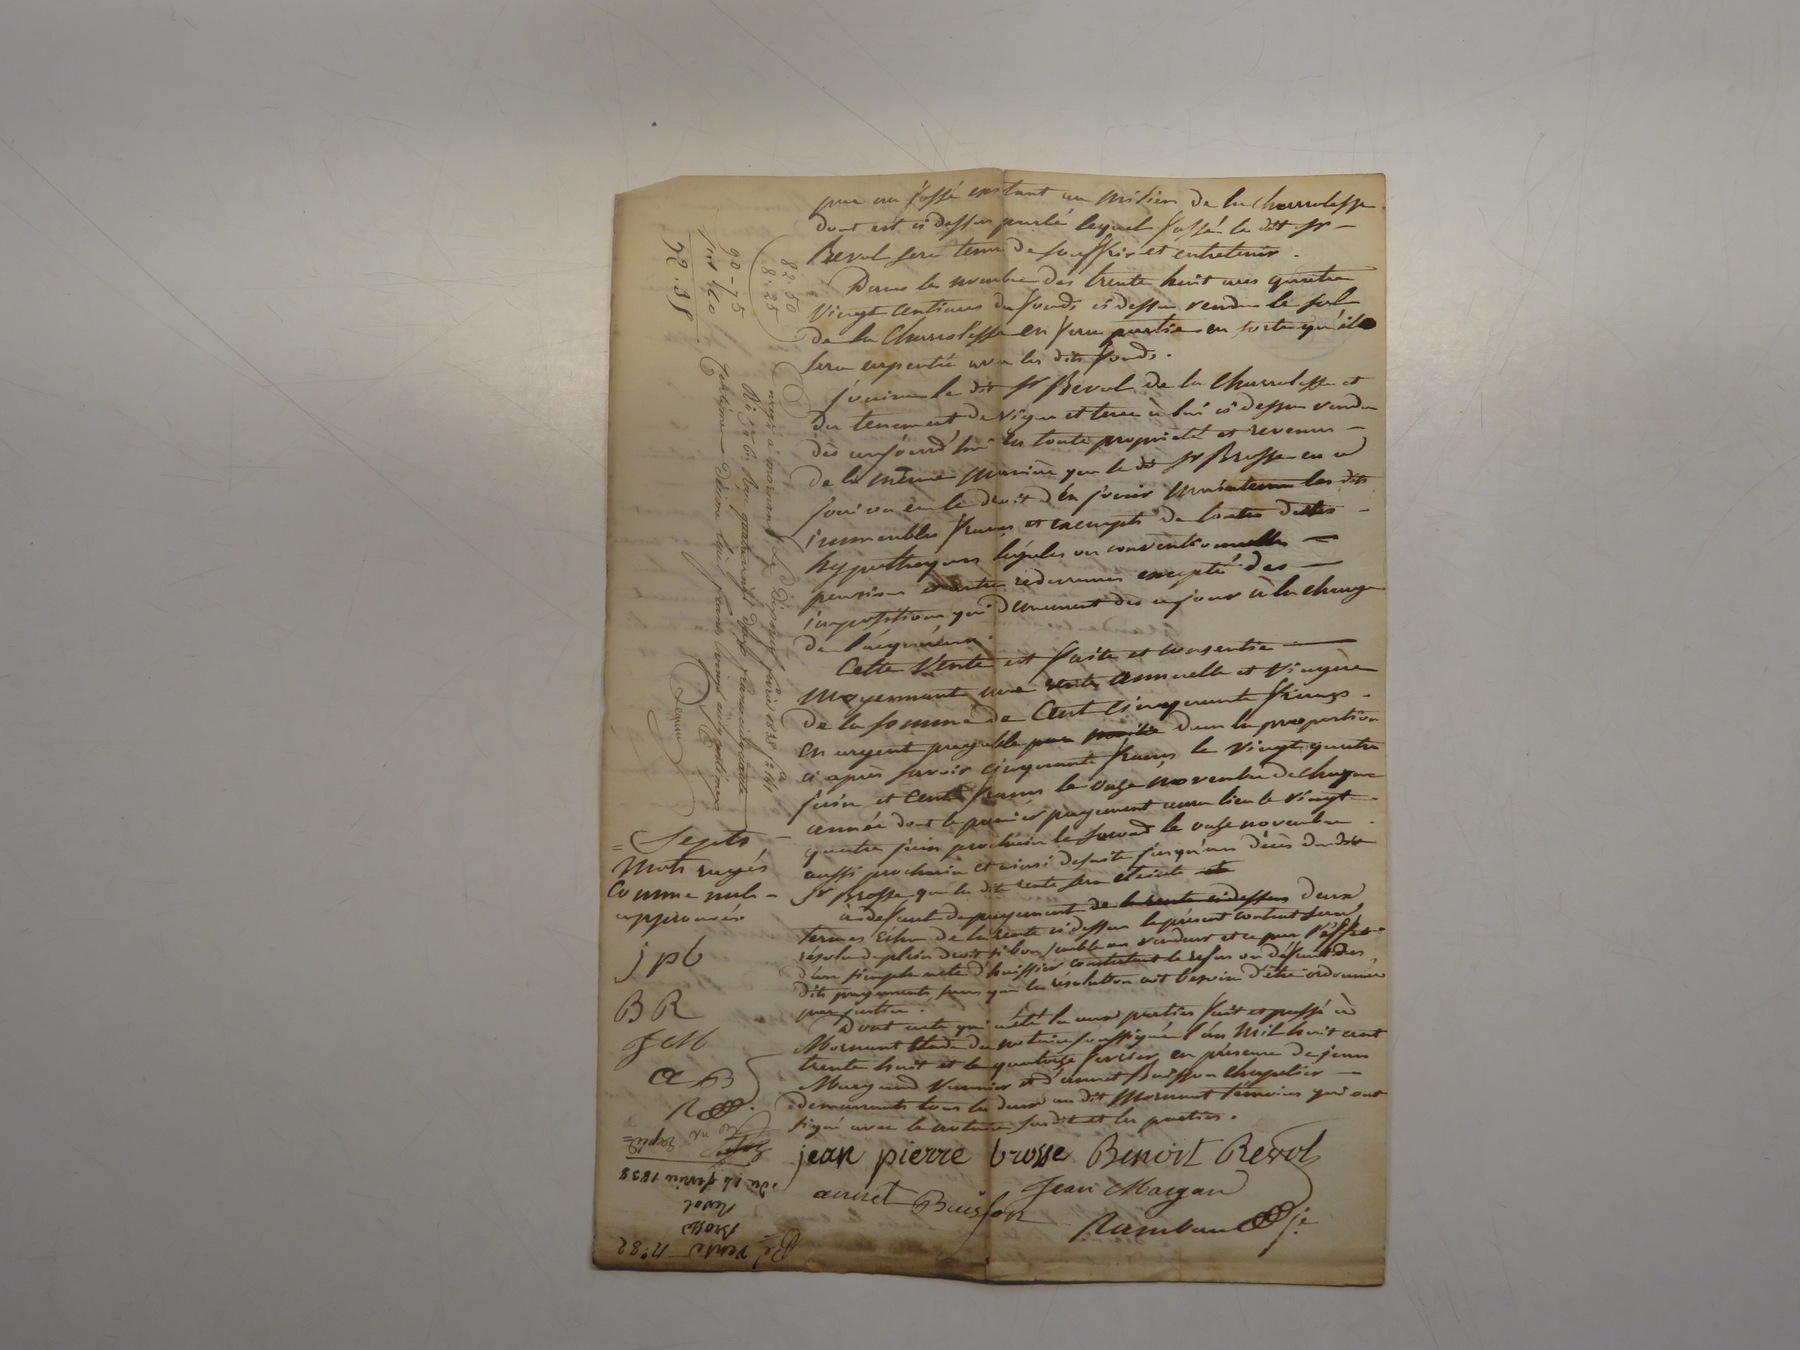 par un fossé existant au milieu de la charrolesse
dont est ci dessus parlé lequel fossé le dit sr
Revol sera tenu de souffrir et entretenir.
Dans le nombre des trente huit ares quatre
vingt centiares du fonds ci dessus vendu le sol
de la charrolesse en fera partie en sorte qu'il
sera arpenté avec les dits fonds.
Jouira le dit sr Revol de la charrolesse et
du tenement de vigne et terre à lui ci dessus vendu
dès aujourd'hui en toute propriété et revenus
de la même manière que le dit sr Brosse en a
joui ou eu le droit d'en jouir maintenu les dits
immeubles francs et exempts de toutes dettes
hypothèques légales ou conventionnelles
pensions et autres redevances excepté des
impositions qui demeurent dès ce jour à la charge
de l'acquéreur.
Cette vente est faite et consentie
moyennant une rente annuelle et viagère
de la somme de cent cinquante francs
en argent payable par moitié dans la proportion
ci après savoir cinquante francs le vingt quatre
juin et cent francs le onze novembre de chaque
année dont le premier payement aura lieu le vingt
quatre juin prochain le second le onze novembre
aussi prochain et ainsi de suite jusqu'au décès du dit
sr Brosse que la dite rente sera éteinte
à défaut de payement de la rente ci dessus deux
termes échus de la rente ci dessus le présent contrat sera
résolu de plein droit si bon semble au vendeur et ce par l'effet
d'un simple acte d'huissier constatant le refus ou défaut des
dits payements sans que la résolution ait besoin d'être ordonnée
par justice.
Dont acte qui a été lu aux parties fait et passé à
Mornant étude du notaire soussigné l'an mil huit cent
trente huit et le quatorze février en présence de jean
Margand vannier et d'annet Buisson chapelier
demeurants tous les deux au dit Mornant témoins qui ont
signé avec le notaire susdit et les parties.
jean pierre brosse Benoit Revol
annet Buisson Jean Margand
Rambaud
Septs
mots rayés
comme nuls
approuvés
jpb
BR
JM
aB
R
82.50
8.25
90-75
1.60
92.35
à mornant le février 1838
Vente n° 82
Brosse
Revol
du 14 février 1838